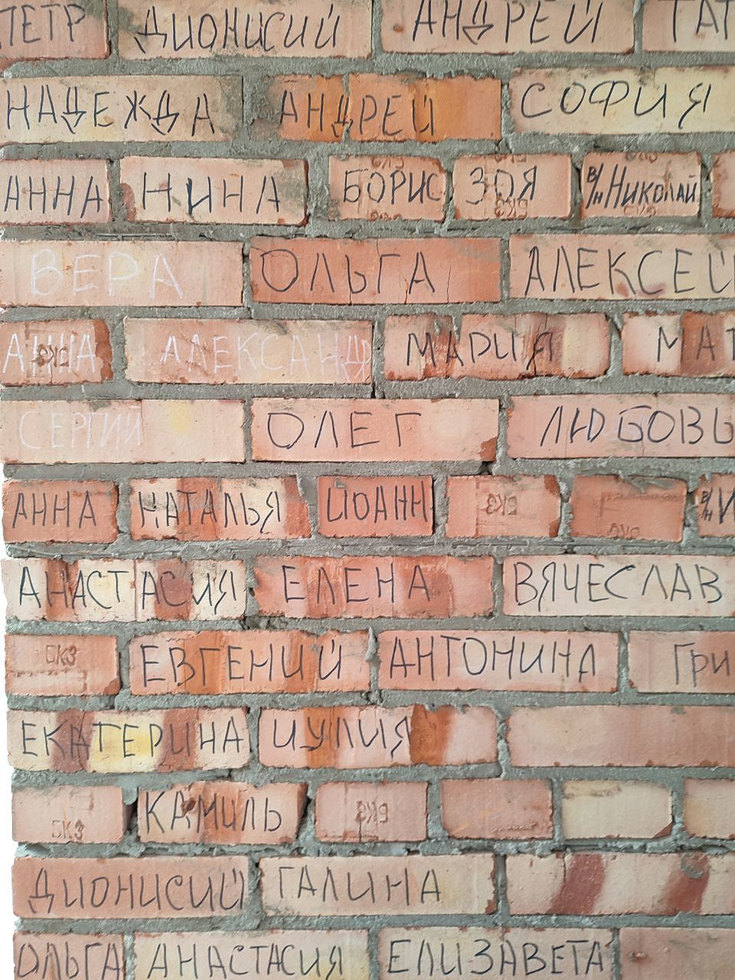 ПЕТР ДИОНИСИЙ АНДРЕЙ ТАТ
НАДЕЖДА АНДРЕЙ СОФИЯ
АННА НИНА БОРИС ЗОЯ В/Н НИКОЛАЙ
ВЕРА ОЛЬГА АЛЕКСЕЙ
АННА АЛЕКСАНДР МАРИЯ МАТ
СЕРГИЙ ОЛЕГ ЛЮБОВЬ
АННА НАТАЛЬЯ ИОАНН БКЗ В/Н И
АНАСТАСИЯ ЕЛЕНА ВЯЧЕСЛАВ
БКЗ ЕВГЕНИЙ АНТОНИНА ГРИ
ЕКАТЕРИНА ИУЛИЯ
БКЗ КАМИЛЬ БКЗ
ДИОНИСИЙ ГАЛИНА
ОЛЬГА АНАСТАСИЯ ЕЛИЗАВЕТА